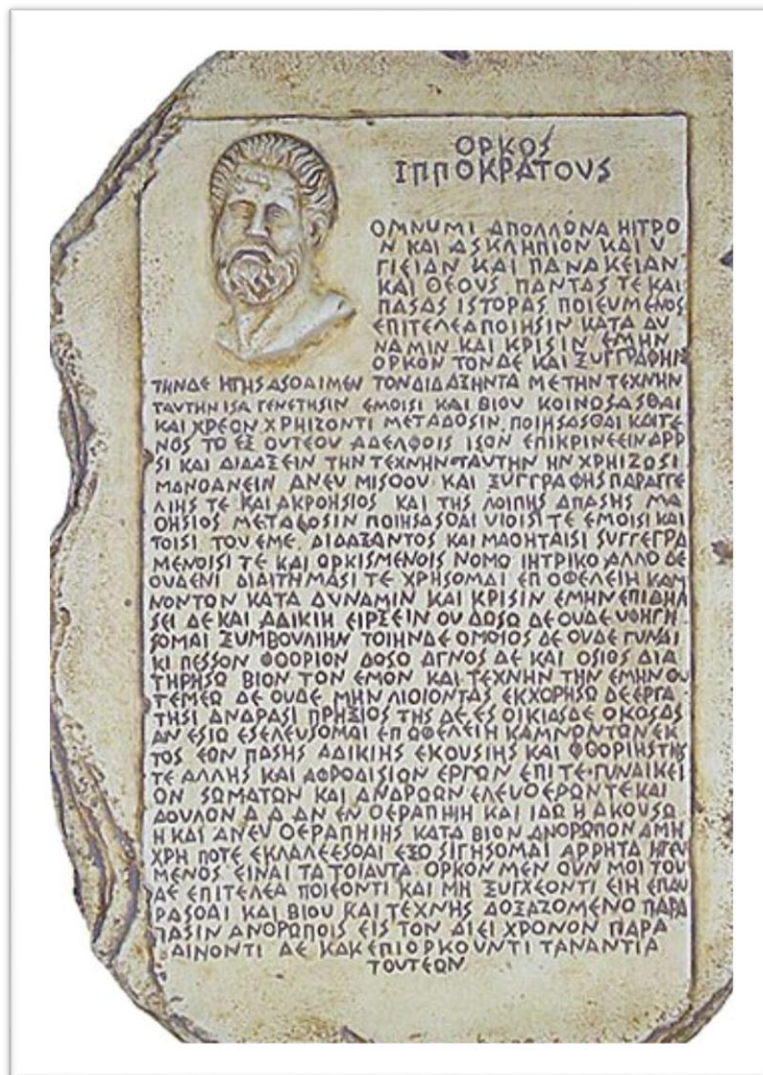 ΟΡΚΟΣ
ΙΠΠΟΚΡΑΤΟΥΣ
ΟΜΝΥΜΙ ΑΠΟΛΛΩΝΑ ΗΙΤΡΟ
Ν ΚΑΙ ΑΣΚΛΗΠΙΟΝ ΚΑΙ Υ
ΓΙΕΙΑΝ ΚΑΙ ΠΑΝΑΚΕΙΑΝ
ΚΑΙ ΘΕΟΥΣ ΠΑΝΤΑΣ ΤΕ ΚΑΙ
ΠΑΣΑΣ ΙΣΤΟΡΑΣ ΠΟΙΕΥΜΕΝΟΣ
ΕΠΙΤΕΛΕΑ ΠΟΙΗΣΙΝ ΚΑΤΑ ΔΥ
ΝΑΜΙΝ ΚΑΙ ΚΡΙΣΙΝ ΕΜΗΝ
ΟΡΚΟΝ ΤΟΝΔΕ ΚΑΙ ΞΥΓΓΡΑΦΗΝ
ΤΗΝΔΕ ΗΓΗΣΑΣΟΑΙ ΜΕΝ ΤΟΝ ΔΙΔΑΞΗΝΤΑ ΜΕ ΤΗΝ ΤΕΧΝΗΝ
ΤΑΥΤΗΝ ΙΣΑ ΓΕΝΕΤΗΣΙΝ ΕΜΟΙΣΙ ΚΑΙ ΒΙΟΥ ΚΟΙΝΩΣΑΣΘΑΙ
ΚΑΙ ΧΡΕΩΝ ΧΡΗΙΖΟΝΤΙ ΜΕΤΑΔΟΣΙΝ ΠΟΙΗΣΑΣΘΑΙ ΚΑΙ ΓΕ
ΝΟΣ ΤΟ ΕΞ ΟΥΤΕΟΥ ΑΔΕΛΦΟΙΣ ΙΣΟΝ ΕΠΙΚΡΙΝΕΕΙΝ ΑΡΡ
ΣΙ ΚΑΙ ΔΙΔΑΞΕΙΝ ΤΗΝ ΤΕΧΝΗΝ ΤΑΥΤΗΝ ΗΝ ΧΡΗΙΖΩΣΙ
ΜΑΝΟΑΝΕΙΝ ΑΝΕΥ ΜΙΣΟΟΥ ΚΑΙ ΞΥΓΓΡΑΦΗΣ ΠΑΡΑΓΓΕ
ΛΙΗΣ ΤΕ ΚΑΙ ΑΚΡΟΗΣΙΟΣ ΚΑΙ ΤΗΣ ΛΟΙΠΗΣ ΑΠΑΣΗΣ ΜΑ
ΟΗΣΙΟΣ ΜΕΤΑΔΟΣΙΝ ΠΟΙΗΣΑΣΟΑΙ ΥΙΟΙΣΙ ΤΕ ΕΜΟΙΣΙ ΚΑΙ
ΤΟΙΣΙ ΤΟΥ ΕΜΕ ΔΙΔΑΞΑΝΤΟΣ ΚΑΙ ΜΑΟΗΤΑΙΣΙ ΣΥΓΓΕΓΡΑ
ΜΕΝΟΙΣΙ ΤΕ ΚΑΙ ΟΡΚΙΣΜΕΝΟΙΣ ΝΟΜΩ ΙΗΤΡΙΚΟ ΑΛΛΟ ΔΕ
ΟΥΔΕΝΙ ΔΙΑΙΤΗΜΑΣΙ ΤΕ ΧΡΗΣΟΜΑΙ ΕΠ ΟΦΕΛΕΙΗ ΚΑΜ
ΝΟΝΤΩΝ ΚΑΤΑ ΔΥΝΑΜΙΝ ΚΑΙ ΚΡΙΣΙΝ ΕΜΗΝ ΕΠΙ ΔΗΛ
ΣΕΙ ΔΕ ΚΑΙ ΑΔΙΚΙΗ ΕΙΡΞΕΙΝ ΟΥ ΔΩΣΩ ΔΕ ΟΥΔΕ ΥΦΗΓΗ
ΣΟΜΑΙ ΞΥΜΒΟΥΛΙΗΝ ΤΟΙΗΝΔΕ ΟΜΟΙΟΣ ΔΕ ΟΥΔΕ ΓΥΝΑΙ
ΚΙ ΠΕΣΣΟΝ ΦΟΟΡΙΟΝ ΔΟΣΟ ΑΓΝΟΣ ΔΕ ΚΑΙ ΟΣΙΟΣ ΔΙΑ
ΤΗΡΗΣΩ ΒΙΟΝ ΤΟΝ ΕΜΟΝ ΚΑΙ ΤΕΧΝΗΝ ΤΗΝ ΕΜΗΝ ΟΥ
ΤΕΜΕΩ ΔΕ ΟΥΔΕ ΜΗΝ ΛΙΟΙΟΝΤΑΣ ΕΚΧΟΡΗΣΩ ΔΕ ΕΡΓΑ
ΤΗΣΙ ΑΝΔΡΑΣΙ ΠΡΗΞΙΟΣ ΤΗΣ ΔΕ ΕΣ ΟΙΚΙΑΣ ΔΕ ΟΚΟΣΑΣ
ΑΝ ΕΣΙΩ ΕΣΕΛΕΥΣΟΜΑΙ ΕΠ ΩΦΕΛΕΙΗ ΚΑΜΝΟΝΤΩΝ ΕΚ
ΤΟΣ ΕΟΝ ΠΑΣΗΣ ΑΔΙΚΙΗΣ ΕΚΟΥΣΙΗΣ ΚΑΙ ΦΘΟΡΙΗΣ ΤΗΣ
ΤΕ ΑΛΛΗΣ ΚΑΙ ΑΦΡΟΔΙΣΙΩΝ ΕΡΓΩΝ ΕΠΙ ΤΕ ΓΥΝΑΙΚΕΙ
ΩΝ ΣΩΜΑΤΩΝ ΚΑΙ ΑΝΔΡΩΩΝ ΕΛΕΥΟΕΡΩΝ ΤΕ ΚΑΙ
ΔΟΥΛΟΝ Α Δ ΑΝ ΕΝ ΟΕΡΑΠΗΙΗ ΚΑΙ ΙΔΩ Η ΑΚΟΥΣΩ
Η ΚΑΙ ΑΝΕΥ ΟΕΡΑΠΗΙΗΣ ΚΑΤΑ ΒΙΟΝ ΑΝΟΡΩΠΟΝ Α ΜΗ
ΧΡΗ ΠΟΤΕ ΕΚΛΑΛΕΕΣΟΑΙ ΕΞΟ ΣΙΓΗΣΟΜΑΙ ΑΡΡΗΤΑ ΗΓΕΥ
ΜΕΝΟΣ ΕΙΝΑΙ ΤΑ ΤΟΙΑΥΤΑ ΟΡΚΟΝ ΜΕΝ ΟΥΝ ΜΟΙ ΤΟΥ
ΔΕ ΕΠΙΤΕΛΕΑ ΠΟΙΕΟΝΤΙ ΚΑΙ ΜΗ ΞΥΓΧΕΟΝΤΙ ΕΙΗ ΕΠΑΥ
ΡΑΣΟΑΙ ΚΑΙ ΒΙΟΥ ΚΑΙ ΤΕΧΝΗΣ ΔΟΞΑΖΟΜΕΝΟ ΠΑΡΑ
ΠΑΣΙΝ ΑΝΟΡΩΠΟΙΣ ΕΙΣ ΤΟΝ ΑΙΕΙ ΧΡΟΝΟΝ ΠΑΡΑ
ΑΙΝΟΝΤΙ ΔΕ ΚΑΚ ΕΠΙΟΡΚΟΥΝΤΙ ΤΑΝΑΝΤΙΑ
ΤΟΥΤΕΩΝ